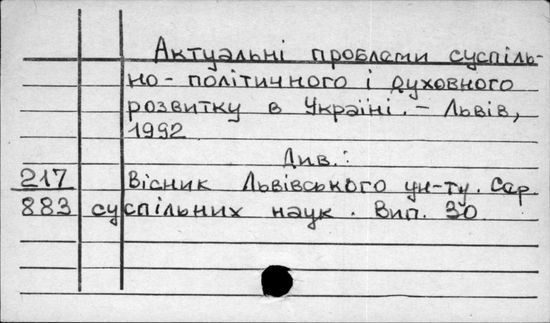 Актуальні проблеми суспіль-
но-політичного і духовного
розвитку в Україні. – Львів,
1992
Див.:
217 Вісник Львівського ун-ту. Сер
883 суспільних наук. Вип. 30